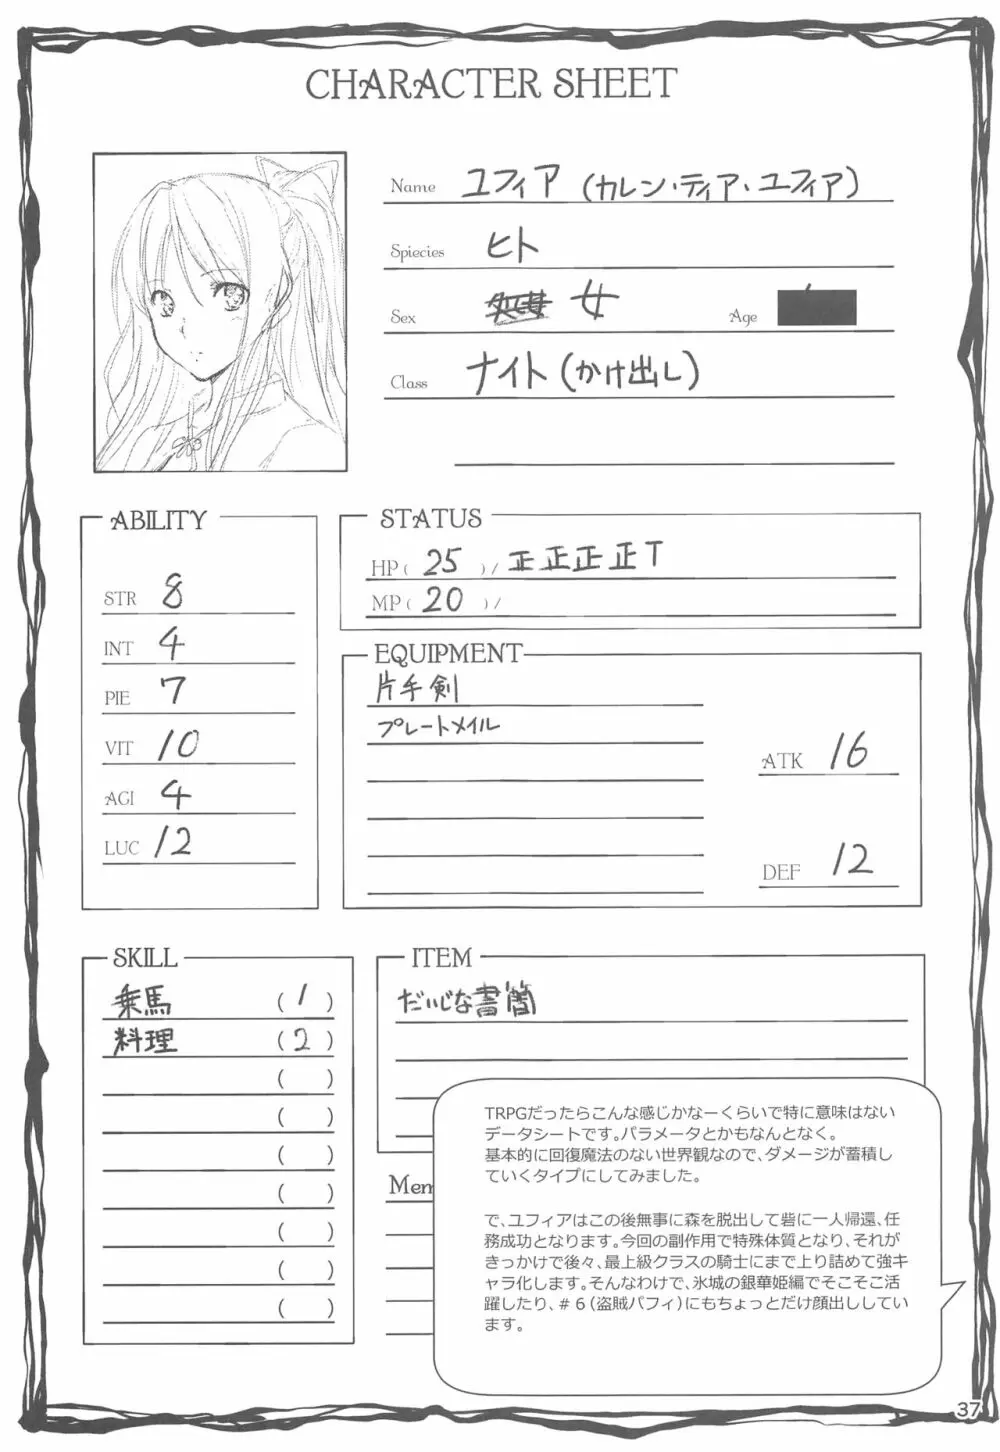 CHARACTER SHEET
Name ユフィア (カレン・ティア・ユフィア)
Spiecies ヒト
Sex 処女 女 Age
Class ナイト (かけ出し)
ABILITY
STR 8
INT 4
PIE 7
VIT 10
AGI 4
LUC 12
STATUS
HP ( 25 ) / 正正正正T
MP ( 20 ) /
EQUIPMENT
片手剣
プレートメイル
ATK 16
DEF 12
SKILL
乗馬 ( 1 )
料理 ( 2 )
( )
( )
( )
( )
( )
( )
( )
ITEM
だいじな書簡
Mem
TRPGだったらこんな感じかなーくらいで特に意味はない
データシートです。パラメータとかもなんとなく。
基本的に回復魔法のない世界観なので、ダメージが蓄積し
ていくタイプにしてみました。
で、ユフィアはこの後無事に森を脱出して砦に一人帰還、任
務成功となります。今回の副作用で特殊体質となり、それが
きっかけで後々、最上級クラスの騎士にまで上り詰めて強キ
ャラ化します。そんなわけで、氷城の銀華姫編でそこそこ活
躍したり、＃６(盗賊パフィ)にもちょっとだけ顔出ししてい
ます。
37